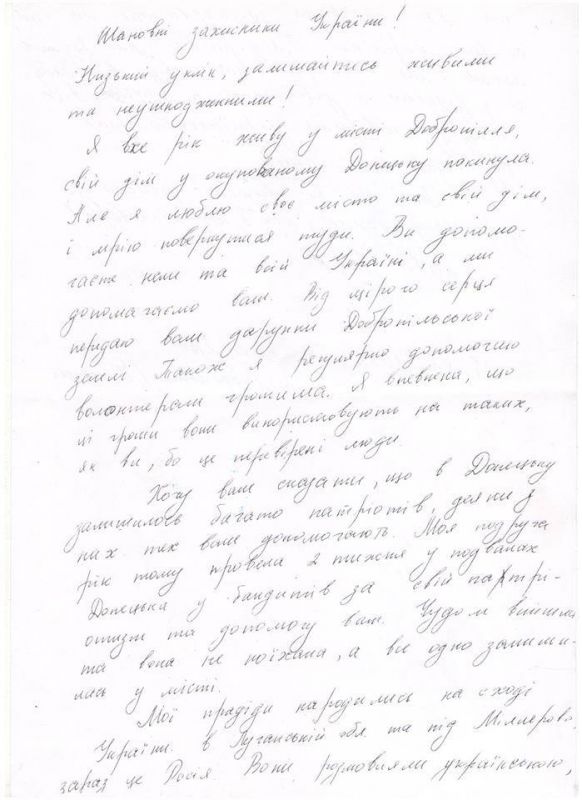 Шановні захисники України!
Низький уклін, залишайтись живими
та неушкодженними!
Я вже рік живу у місті Добропілля,
свій дім у окупованому Донецьку покинула.
Але я люблю своє місто та свій дім,
і мрію повернутися туди. Ви допома-
гаєте мені та всій Україні, а ми
допомагаємо вам. Від щирого серця
передаю вам дарунки Добропільської
землі. Також я регулярно допомогаю
волонтерам грошима. Я впевнена, що
ці гроши вони використовують на таких,
як ви, бо це перевірені люди.
Хочу вам сказати, що в Донецьку
залишилось багато патріотів, деяки з
них теж вам допомогають. Моя подруга
рік тому провела 2 тижня у подвалах
Донецька у бандитів за свій патрі-
отизм та допомогу вам. Чудом вийшла
та вона не поїхала, а все одно залиши-
лась у місті.
Мої прадіди народились на сході
України в Луганській обл та під Міллерово
зараз це Росія. Вони розмовляли українською,